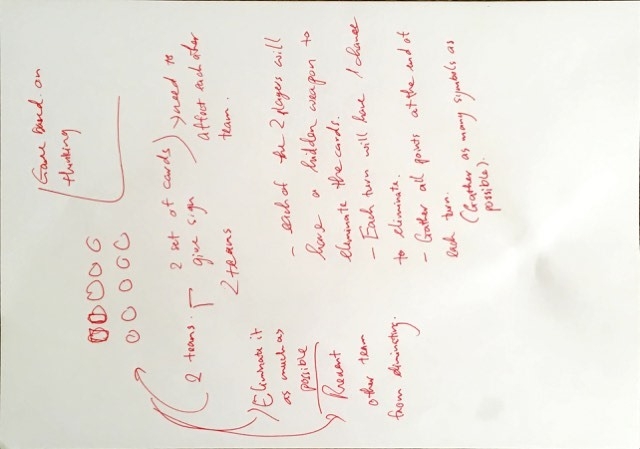 Game based on
thinking
2 teams.
2 set of cards
give sign
2 teams
need to
affect each other
team.
Eliminate it
as much as
possible
Prevent
other team
from eliminating.
- each of the 2 players will
have a hidden weapon to
eliminate the cards.
- Each turn will have 1 chance
to eliminate.
- Gather all points at the end of
each turn.
(Gather as many symbols as
possible).